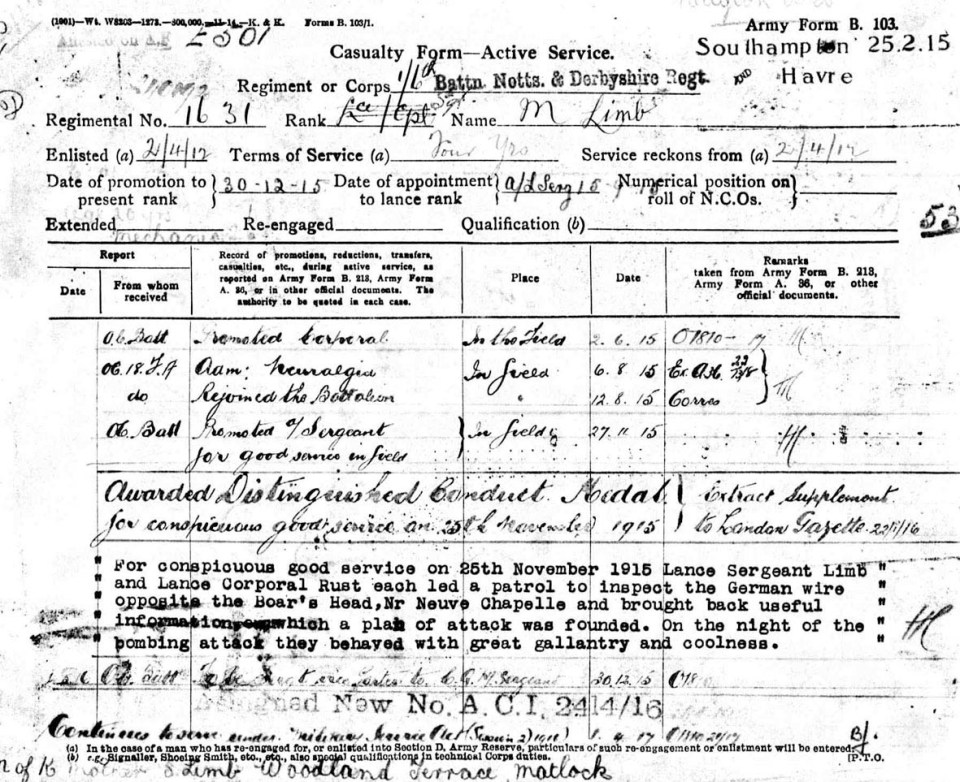 (1901)—Wt. W8203—1273.—500,000.—11-14.—K. & K. Forms B. 103/1.
Army Form B. 103.
E501
Casualty Form—Active Service.
Southampton 25.2.15
and Havre
Regiment or Corps 1/6th Battn. Notts. & Derbyshire Regt.
Regimental No. 1631 Rank Lce/Cpl Sgt Name M Limb
Enlisted (a) 2/4/12 Terms of Service (a) Four Yrs Service reckons from (a) 2/4/12
Date of promotion to present rank } 30-12-15 Date of appointment to lance rank } a/L Serg 15 Numerical position on roll of N.C.Os. }
Extended Re-engaged Qualification (b)
53
mechanic
Report
Date
From whom received
Record of promotions, reductions, transfers, casualties, etc., during active service, as reported on Army Form B. 213, Army Form A. 36, or in other official documents. The authority to be quoted in each case.
Place
Date
Remarks
taken from Army Form B. 213, Army Form A. 36, or other official documents.
O.C. Batt Promoted Corporal In the Field 2.6.15 O1810
OC. 18. F.A Adm: Neuralgia In field 6.8 15 Ex. A36
do Rejoined the Battalion " 12.8.15 Corres
OC. Batt Promoted a/Sergeant In field 27.11 15
for good service in field
Awarded Distinguished Conduct Medal } Extract Supplement
for conspicuous good service on 25th November 1915 } to London Gazette 22/1/16
" For conspicuous good service on 25th November 1915 Lance Sergeant Limb "
" and Lance Corporal Rust each led a patrol to inspect the German wire "
" opposite the Boar's Head, Nr Neuve Chapelle and brought back useful "
" information on which a plan of attack was founded. On the night of the "
" bombing attack they behaved with great gallantry and coolness. "
O.C. Batt To be C. Q. M. Sergeant 30.12.15 O1810
Assigned New No. A.C.I. 2414/16
Continues to serve under Military Service Act (Session 2) 1916 1.4.17
(a) In the case of a man who has re-engaged for, or enlisted into Section D, Army Reserve, particulars of such re-engagement or enlistment will be entered.
(b) e.g. Signaller, Shoeing Smith, etc., etc., also special qualifications in technical Corps duties. [P.T.O.
n of K Mother S Limb Woodland Terrace Matlock